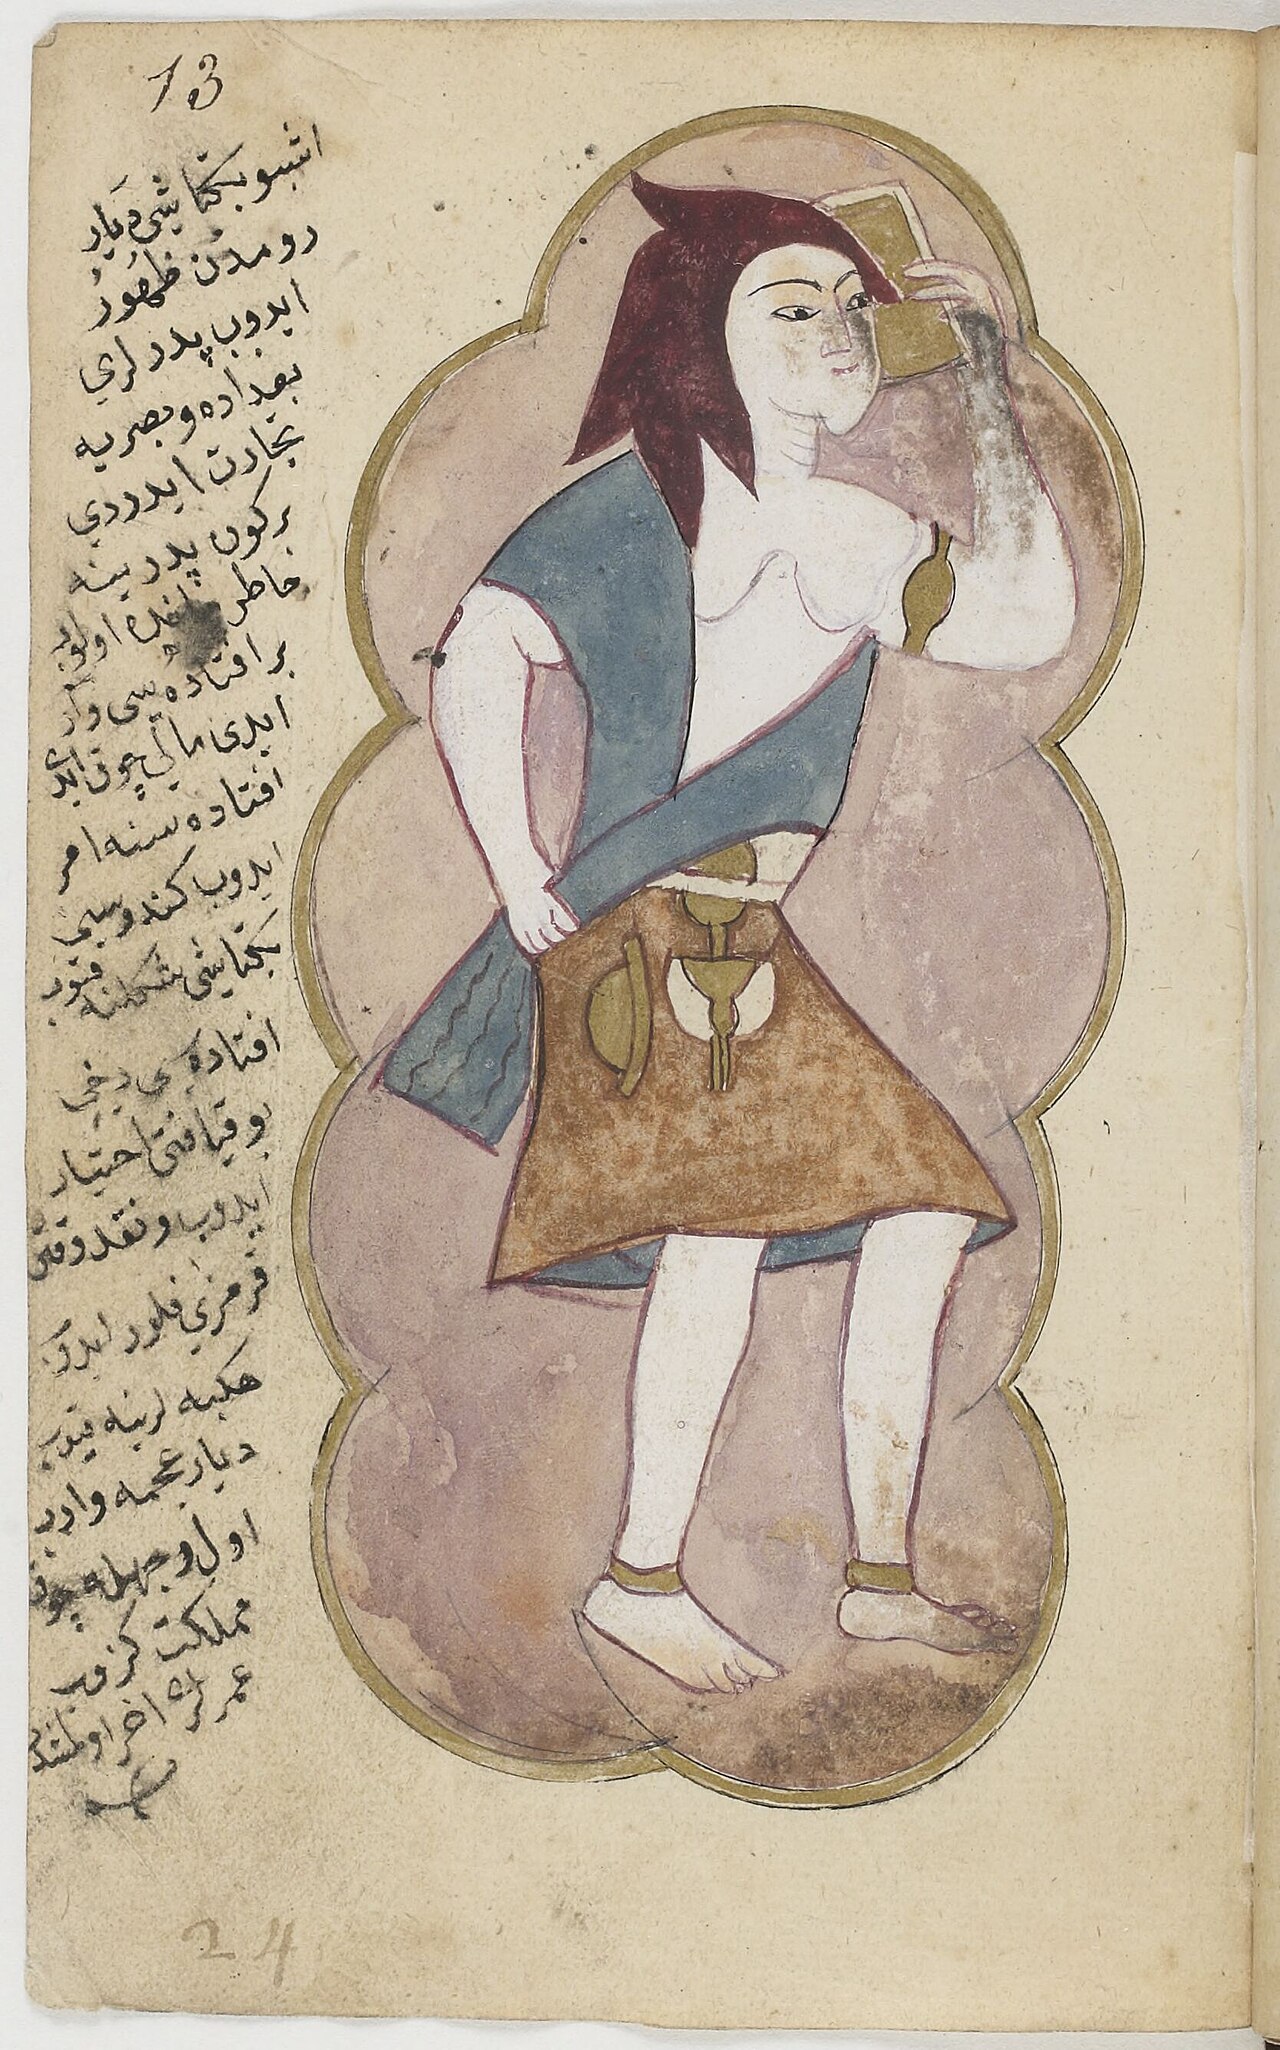 13
اشبو بكتاشی دیار
رومدن ظهور
ایدوب پدرلری
بغداده و بصریه
تجارت ایدردی
بركون پدرینه
خاطر اولوب
بر افتاده سی وار
ایدی مالی چوق ایدی
افتاده سنه امر
ایدوب كندوسی
بكتاشی شكلنه
افتاده سی دخی
بو قیافتی اختیار
ایدوب و نقد وقتی
قرمزی فلور
هكبه لرینه قیوب
دیار عجمه واروب
اول وجهله چوق
مملكت كزوب
عمرلری اخر اولمشدر
24